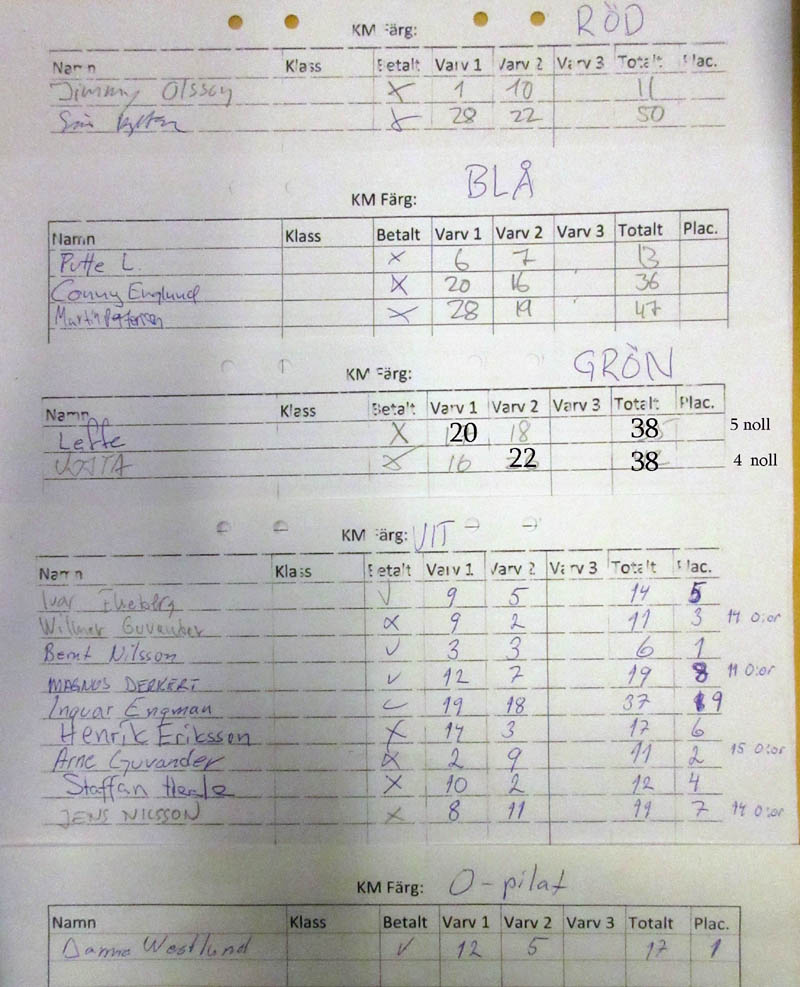 KM Färg: RÖD
Namn Klass Betalt Varv 1 Varv 2 Varv 3 Totalt Plac.
Jimmy Olsson X 1 10 11
X 28 22 50
KM Färg: BLÅ
Namn Klass Betalt Varv 1 Varv 2 Varv 3 Totalt Plac.
Putte L. X 6 7 13
Conny Englund X 20 16 36
Martin Pettersson X 28 19 47
KM Färg: GRÖN
Namn Klass Betalt Varv 1 Varv 2 Varv 3 Totalt Plac.
Leffe X 20 18 38 5 noll
X 16 22 38 4 noll
KM Färg: VIT
Namn Klass Betalt Varv 1 Varv 2 Varv 3 Totalt Plac.
Ivar 9 5 14 5
Wilmer Guvander X 9 2 11 3 14 0:or
Bernt Nilsson 3 3 6 1
MAGNUS DERKERT 12 7 19 8 11 0:or
Ingvar Engman 19 18 37 9
Henrik Eriksson X 14 3 17 6
Arne Guvander X 2 9 11 2 15 0:or
Staffan X 10 2 12 4
JENS NILSSON X 8 11 19 7 14 0:or
KM Färg: O-pilat
Namn Klass Betalt Varv 1 Varv 2 Varv 3 Totalt Plac.
Westlund 12 5 17 1